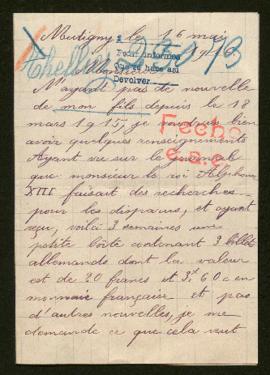 Mutigny le 16 mai
1916
Para informes
que se hace así
Devolver
Monsieur
N'ayant pas de nouvelle
de mon fils depuis le 18
mars 1915, je voudrais bien
avoir quelques renseignements
Fecho
Ayant vu sur le journal
que monsieur le roi Alphonse
XIII faisait des recherches
pour les disparus, et ayant
reçu, voilà 3 semaines une
petite boîte contenant 3 billets
allemands dont la valeur
est de 20 francs et 3f 60 c en
monnaie française et pas
d'autres nouvelles, je me
demande ce que cela veut